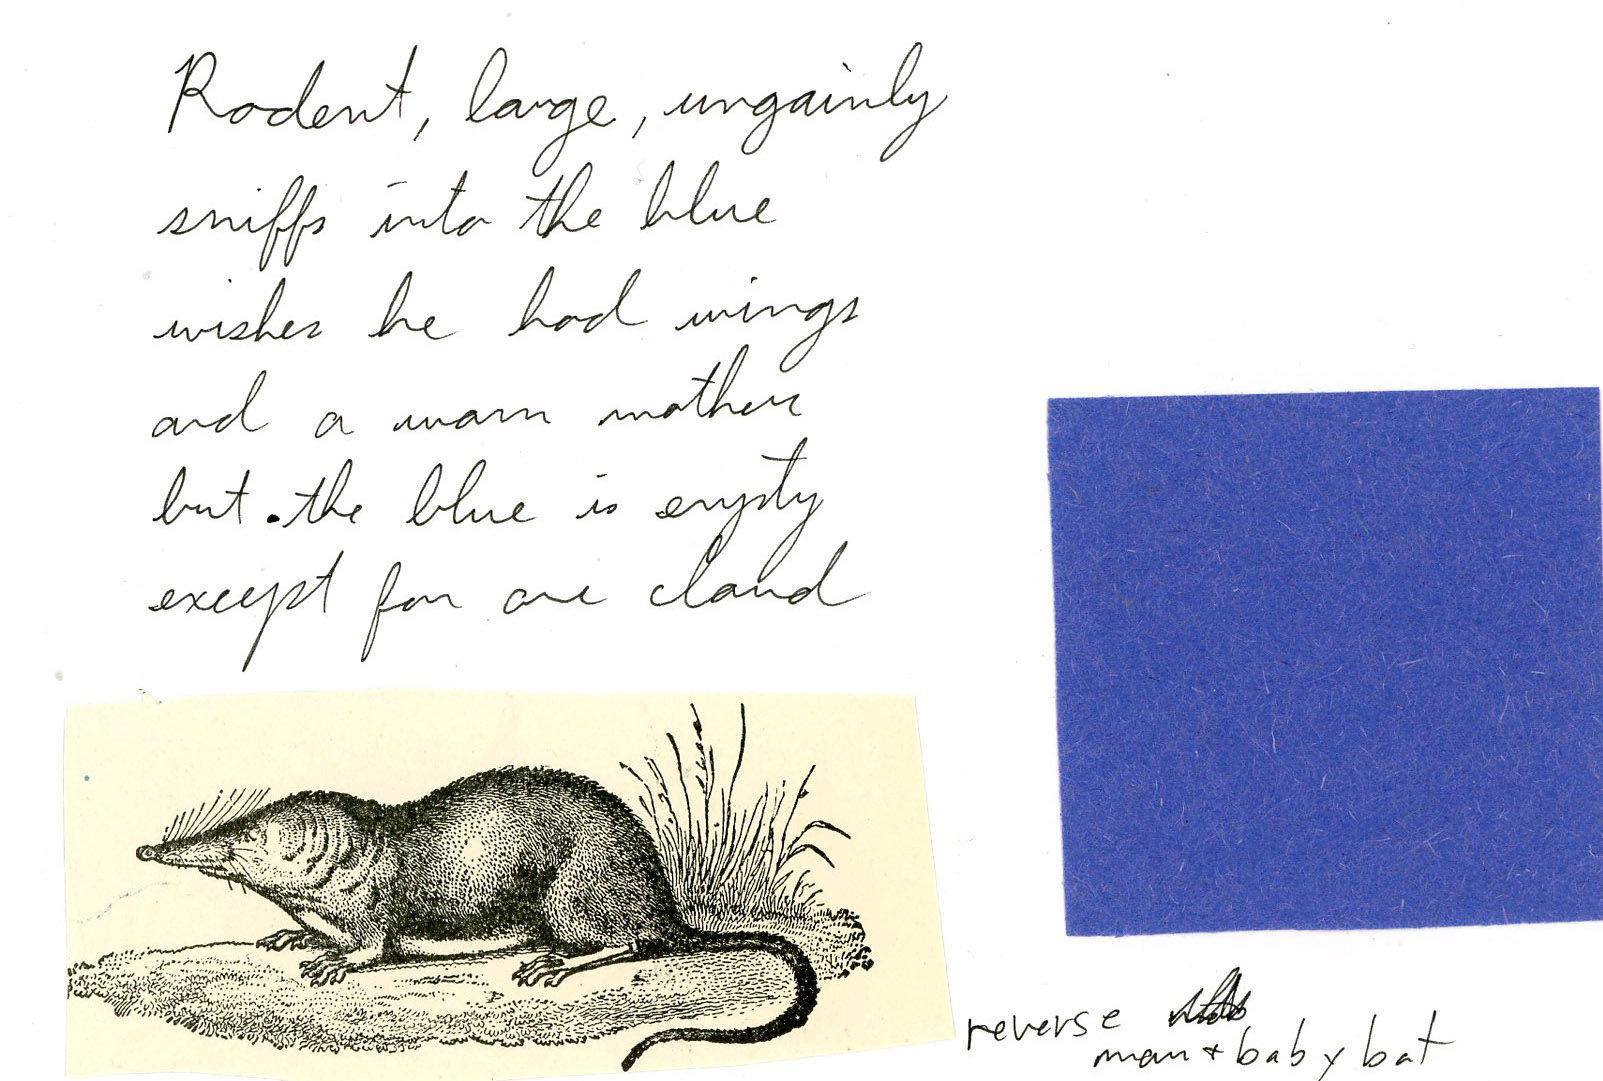 Rodent, large, ungainly
sniffs into the blue
wishes he had wings
and a warm mother
but the blue is empty
except for one cloud
reverse
mom + baby bat